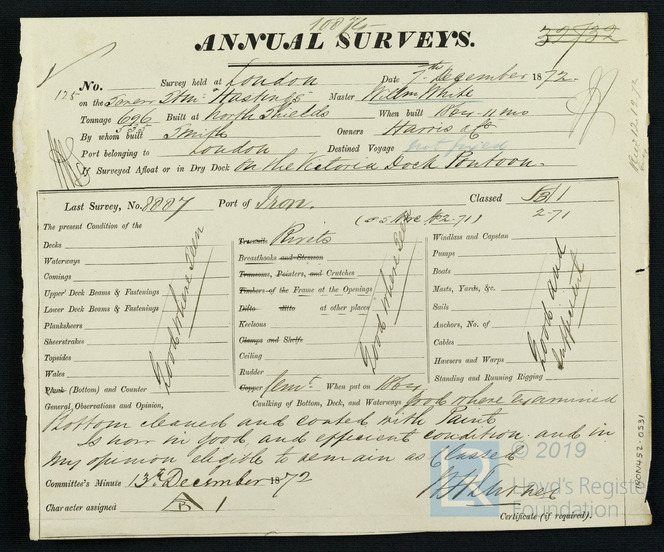 108
ANNUAL SURVEYS.
32732
No. 125 Survey held at London Date 7th December 1872.
on the Screw Stmr Hastings Master Willm White
Tonnage 696 Built at North Shields When built 1864 - 11 mo
By whom built Smith Owners Harris & Co
Port belonging to London Destined Voyage not fixed
If Surveyed Afloat or in Dry Dock On the Victoria Dock Pontoon.
Last Survey, No. 8887 Port of Iron. Classed
2-71
The present Condition of the
Decks
Waterways
Comings
Upper Deck Beams & Fastenings
Lower Deck Beams & Fastenings
Planksheers
Sheerstrakes
Topsides
Wales
Plank (Bottom) and Counter
Good where seen
Treenails Rivits
Breasthooks and Stemson
Transoms, Pointers, and Crutches
Timbers of the Frame at the Openings
Ditto ditto at other places
Keelsons
Clamps and Shelfs
Ceiling
Rudder
Copper Cemt. When put on 1864
Good where seen
Windlass and Capstan
Pumps
Boats
Masts, Yards, &c.
Sails
Anchors, No. of
Cables
Hawsers and Warps
Standing and Running Rigging
Good and
Sufficient
General Observations and Opinion, Caulking of Bottom, Deck, and Waterways Good where examined
Bottom cleaned and coated with Paint
Is now in good and efficient condition and in
my opinion eligible to remain as Classed
Committee's Minute 13th December 1872
Character assigned A B 1
Certificate (if required).
© 2019
Lloyd's Register
Foundation
HON452-0331